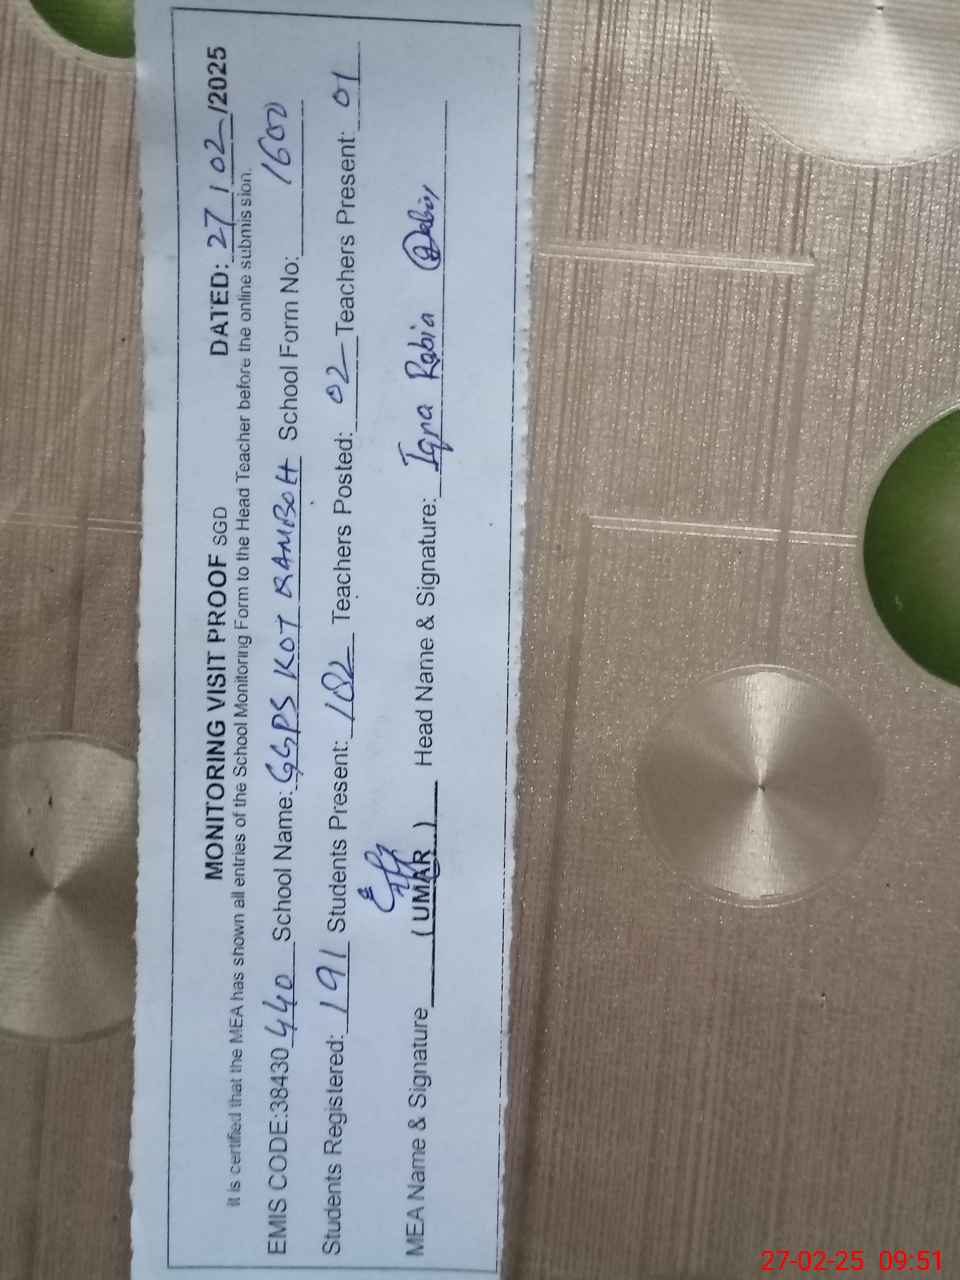 MONITORING VISIT PROOF SGD DATED: 27/02/2025
It is certified that the MEA has shown all entries of the School Monitoring Form to the Head Teacher before the online submission.
EMIS CODE:38430440 School Name: GGPS KOT RAMBOH School Form No: 1600
Students Registered: 191 Students Present: 182 Teachers Posted: 02 Teachers Present: 01
MEA Name & Signature (UMAR) Head Name & Signature: Iqra Rabia
27-02-25 09:51